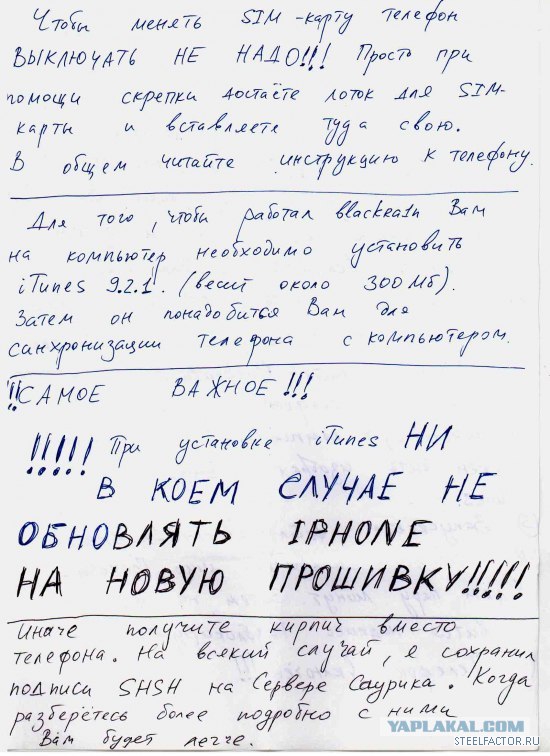 Чтобы менять SIM-карту телефон
ВЫКЛЮЧАТЬ НЕ НАДО!!! Просто при
помощи скрепки достаёте лоток для SIM-
карты и вставляете туда свою.
В общем читайте инструкцию к телефону.
Для того, чтобы работал blackra1n Вам
на компьютер необходимо установить
iTunes 9.2.1. (весит около 300 Мб).
Затем он понадобиться Вам для
синхронизации телефона с компьютером.
!!САМОЕ ВАЖНОЕ!!!
!!!!! При установке iTunes НИ
В КОЕМ СЛУЧАЕ НЕ
ОБНОВЛЯТЬ IPHONE
НА НОВУЮ ПРОШИВКУ!!!!!
Иначе получите кирпич вместо
телефона. На всякий случай, я сохранил
подписи SHSH на Сервере Саурика. Когда
разберётесь более подробно с ними
Вам будет легче.
YAPLAKAL.COM
STEELFACTOR.RU